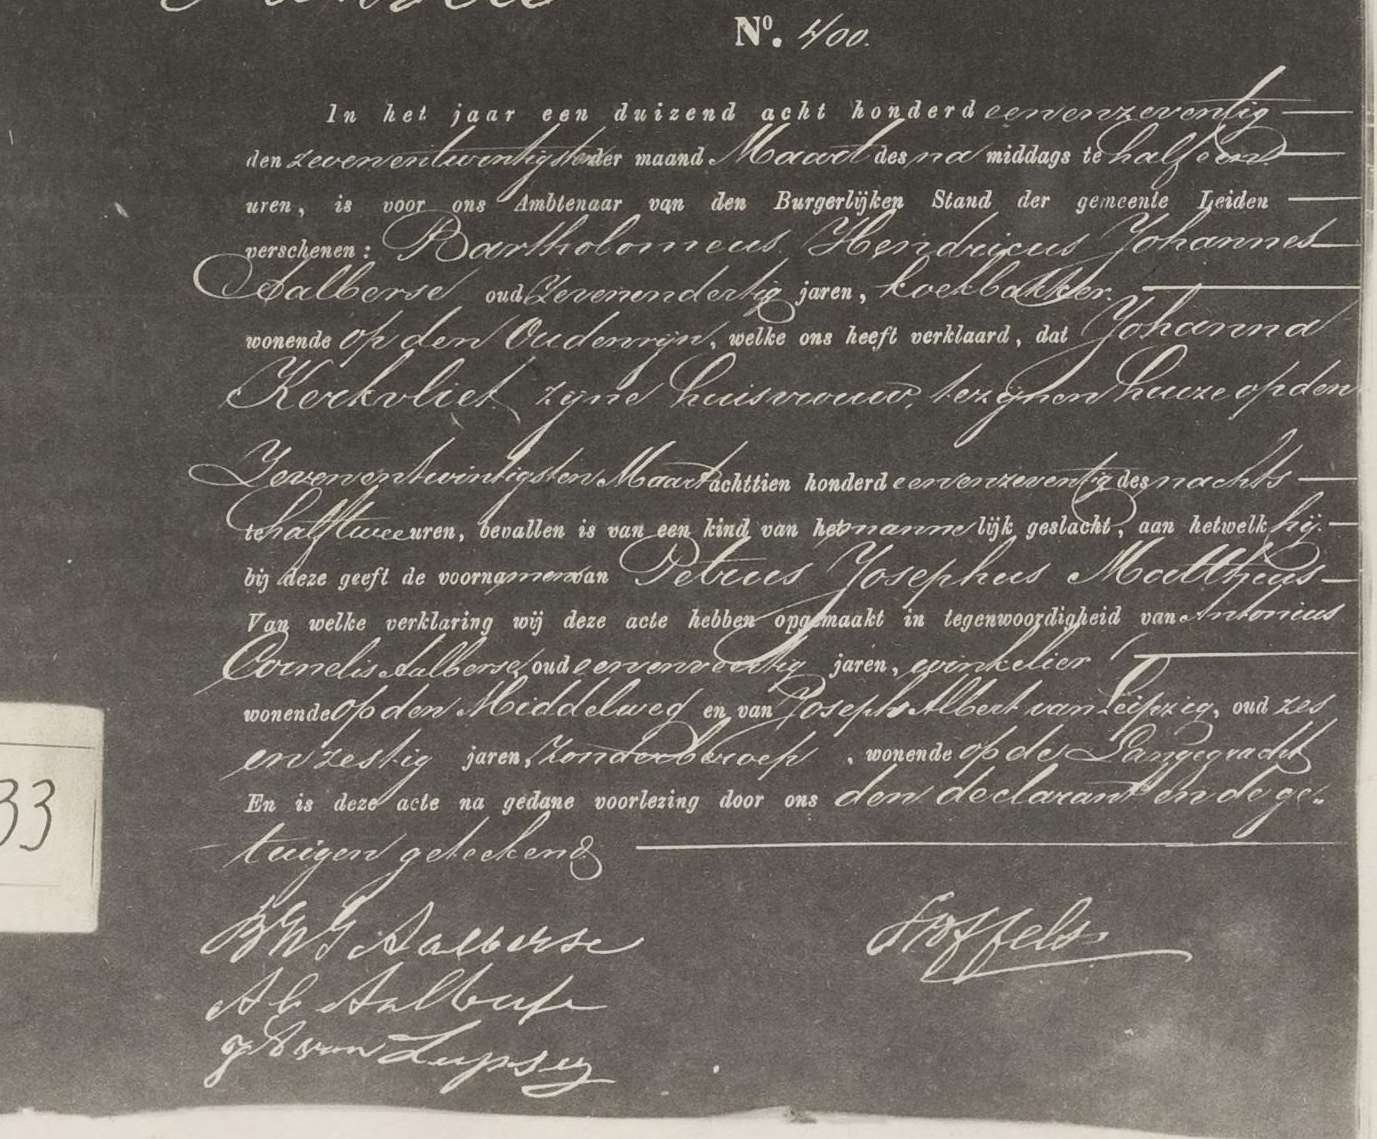 No. 400.
In het jaar een duizend acht honderd eenenzeventig
den zevenentwintigsten der maand Maart des na middags te half een
uren, is voor ons Ambtenaar van den Burgerlijken Stand der gemeente Leiden
verschenen: Bartholomeus Hendricus Johannes
Aalberse oud Zevenendertig jaren, koekbakker.
wonende op den Oudenrijn, welke ons heeft verklaard, dat Johanna
Kerkvliet, zijne huisvrouw, te zijnen huize op den
Zevenentwintigsten Maart achttien honderd eenenzeventig des nachts
te half twee uren, bevallen is van een kind van het mannelijk geslacht, aan hetwelk hij.
bij deze geeft de voornamen van Petrus Josephus Mattheus
Van welke verklaring wij deze acte hebben opgemaakt in tegenwoordigheid van Antonius
Cornelis Aalberse, oud eenenveertig jaren, winkelier
wonende op den Middelweg en van Joseph Albert van Leipzig, oud zes
en zestig jaren, zonder beroep, wonende op de Langegracht
En is deze acte na gedane voorlezing door ons den declarant en de ge-
tuigen geteekend.
BHJ Aalberse
Stoffels
AC Aalberse
JA van Leipsig
33